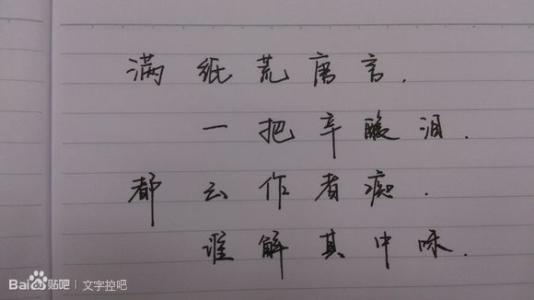 满纸荒唐言.
一把辛酸泪.
都云作者痴.
谁解其中味.
Bai贴吧 | 文字控吧